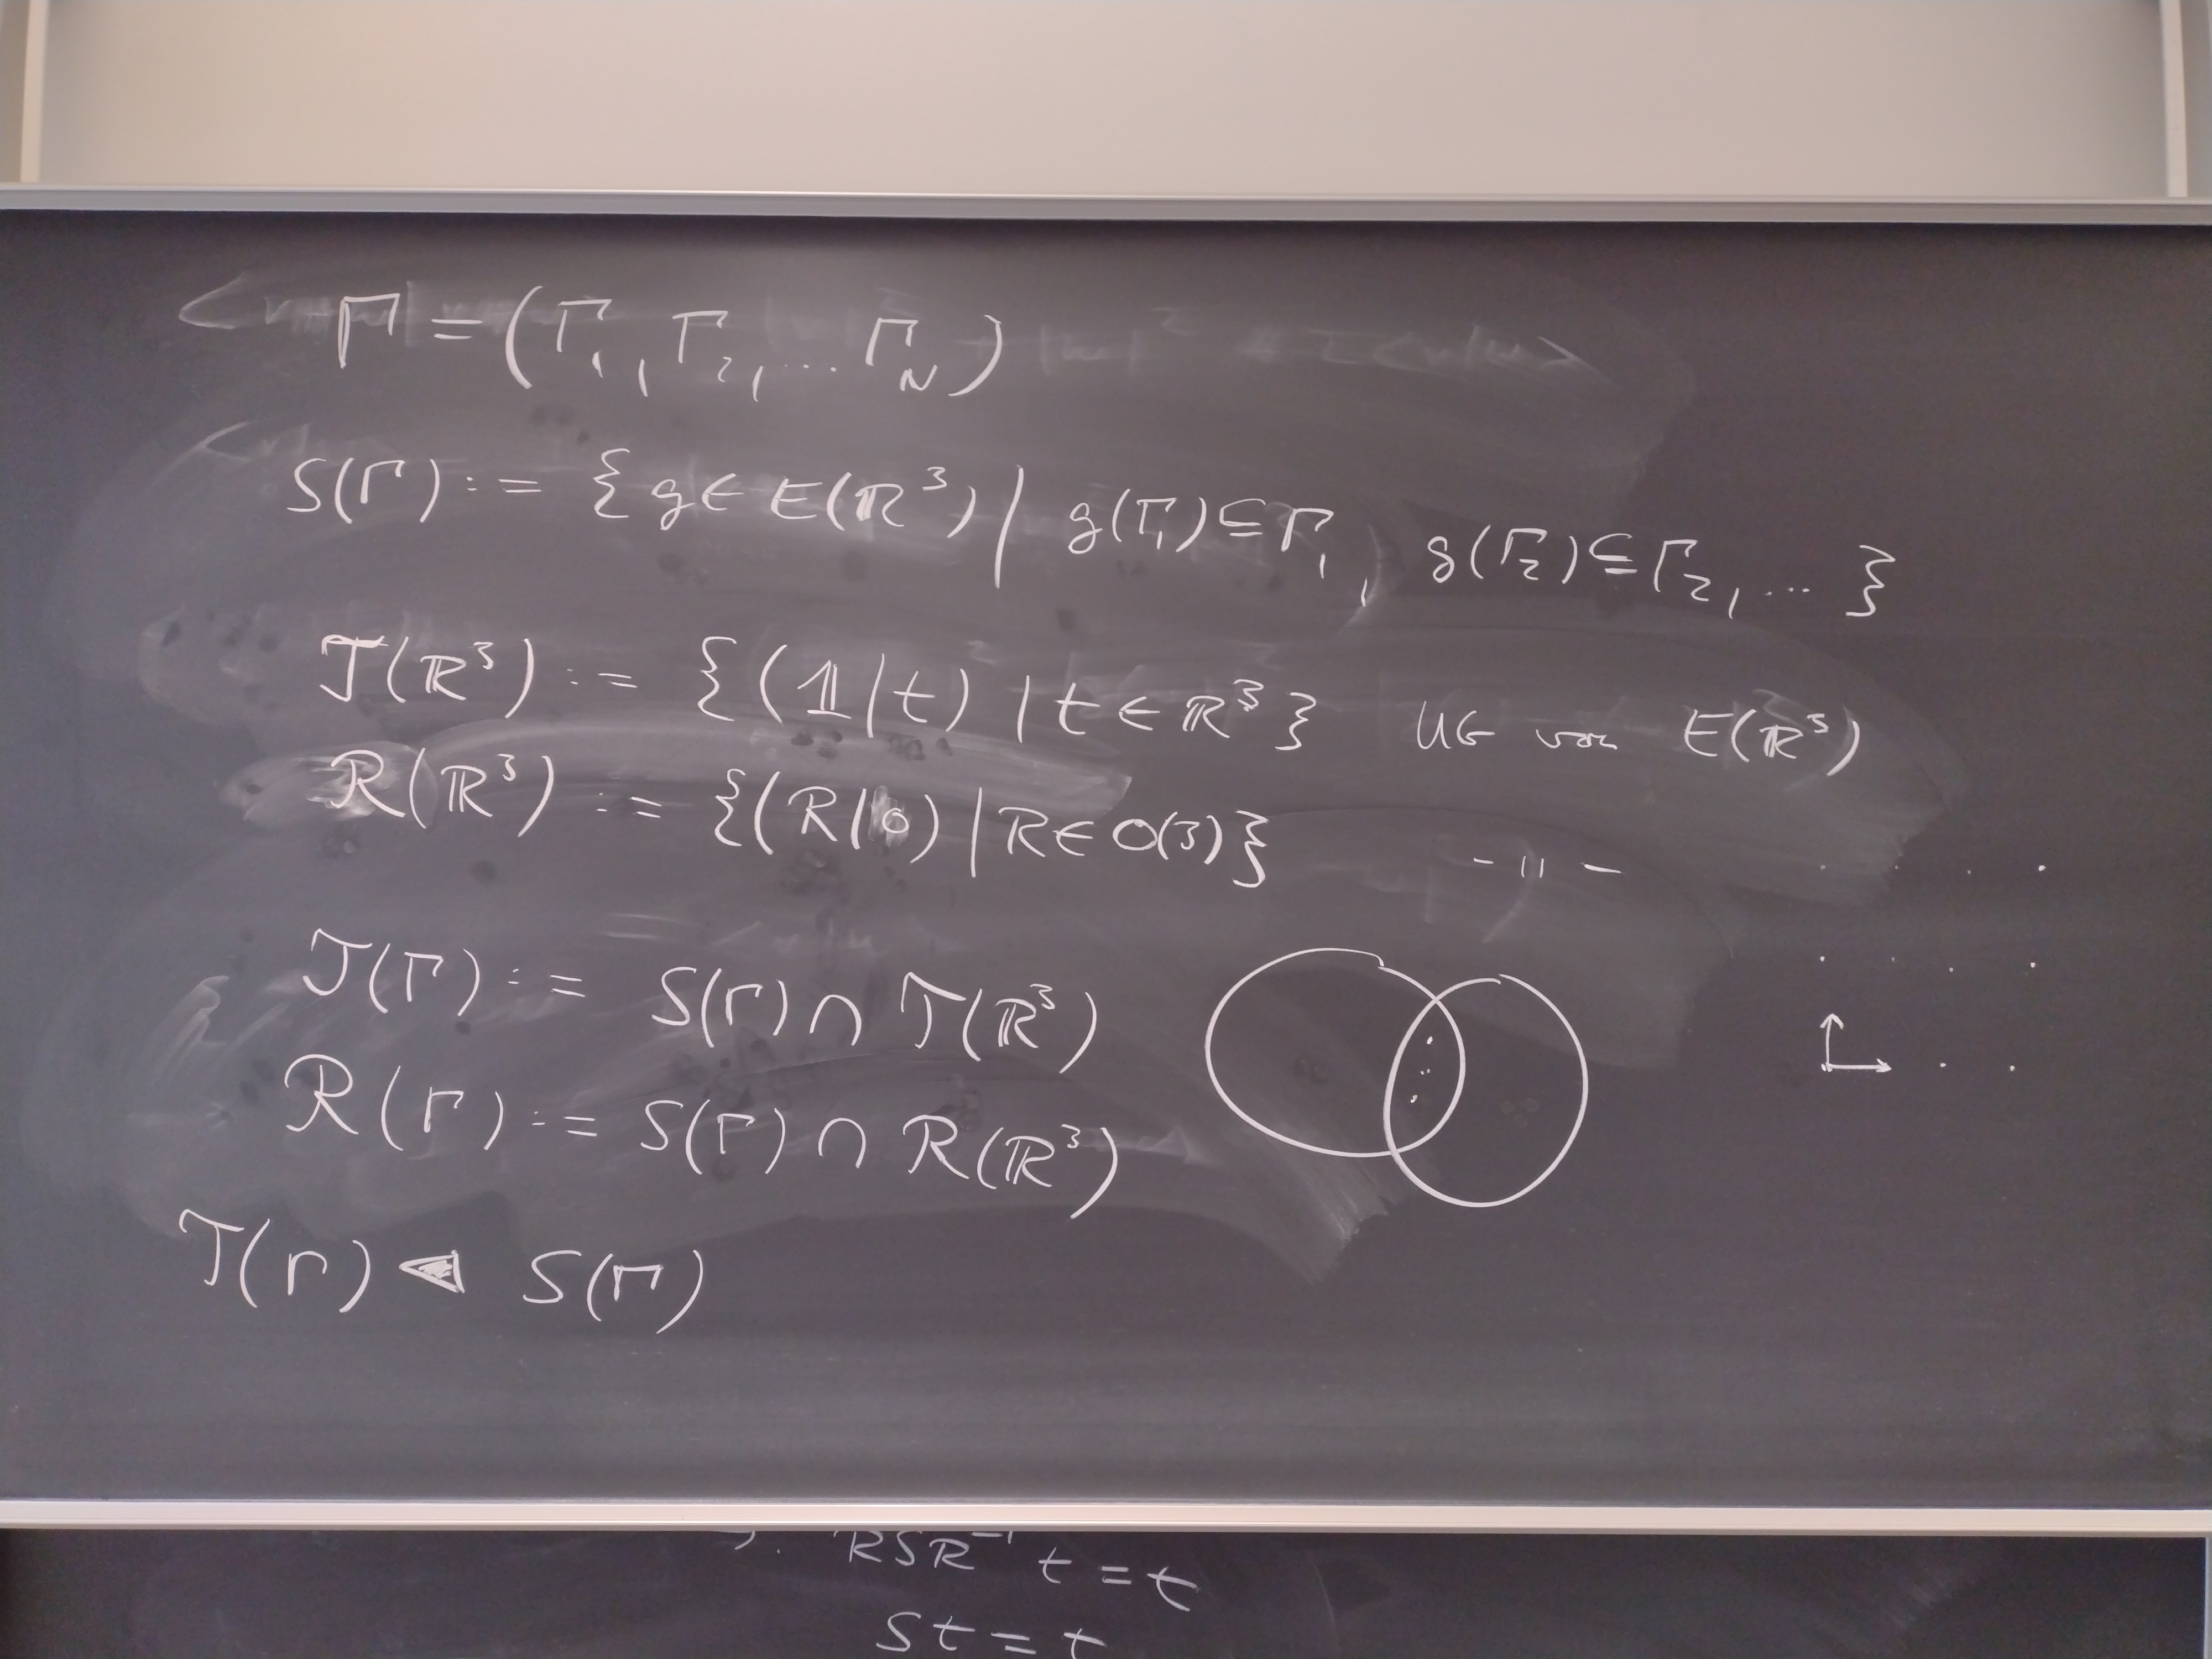 Γ = (Γ₁, Γ₂, ... Γ_N)
S(Γ) := { g ∈ E(ℝ³) | g(Γ₁) ⊆ Γ₁, g(Γ₂) ⊆ Γ₂, ... }
T(ℝ³) := { (𝟙|t) | t ∈ ℝ³ } UG von E(ℝ³)
R(ℝ³) := { (R|0) | R ∈ O(3) } - " -
T(Γ) := S(Γ) ∩ T(ℝ³)
R(Γ) := S(Γ) ∩ R(ℝ³)
T(Γ) ◁ S(Γ)
RSR⁻¹ t = t
St = t